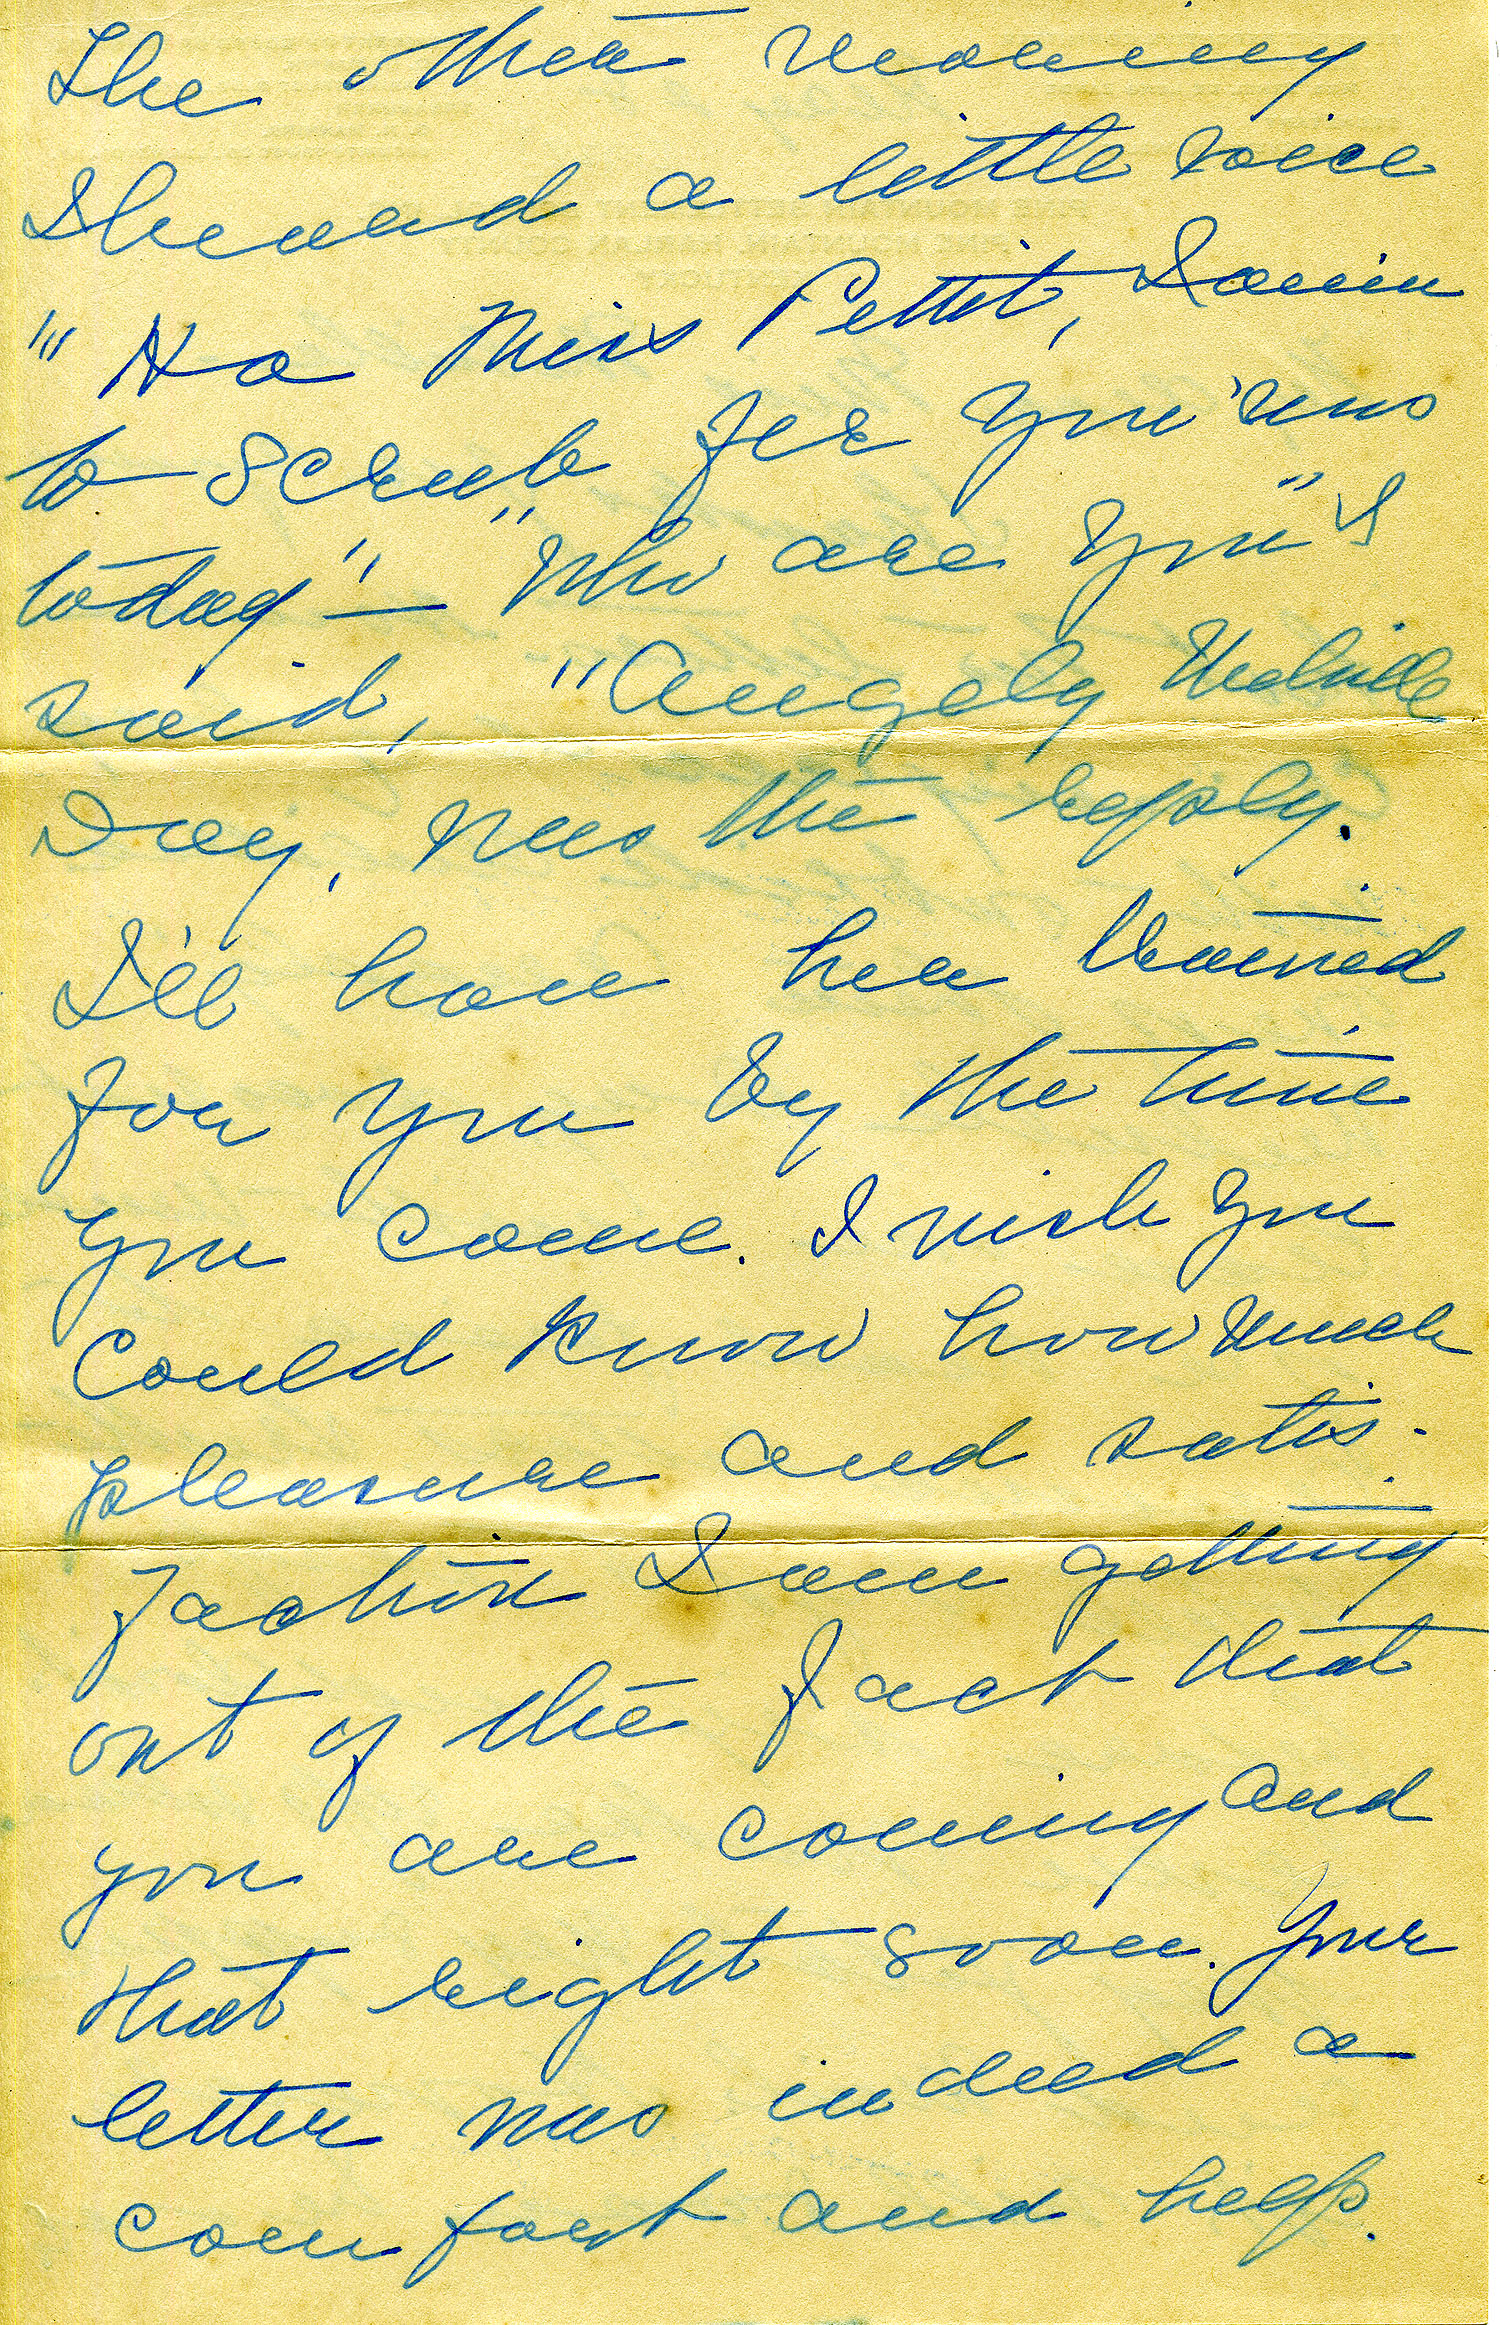 The other morning
I heard a little voice
"Ho Miss Pettit, I aim
to scrub fer you'uns
today" — "Who are you" I
said, "Angely Malinda
Day, was the reply.
I'll have her trained
for you by the time
you come. I wish you
could know how much
pleasure and satis-
faction I am getting
out of the fact that
you are coming and
that right soon. Your
letter was indeed a
comfort and help.